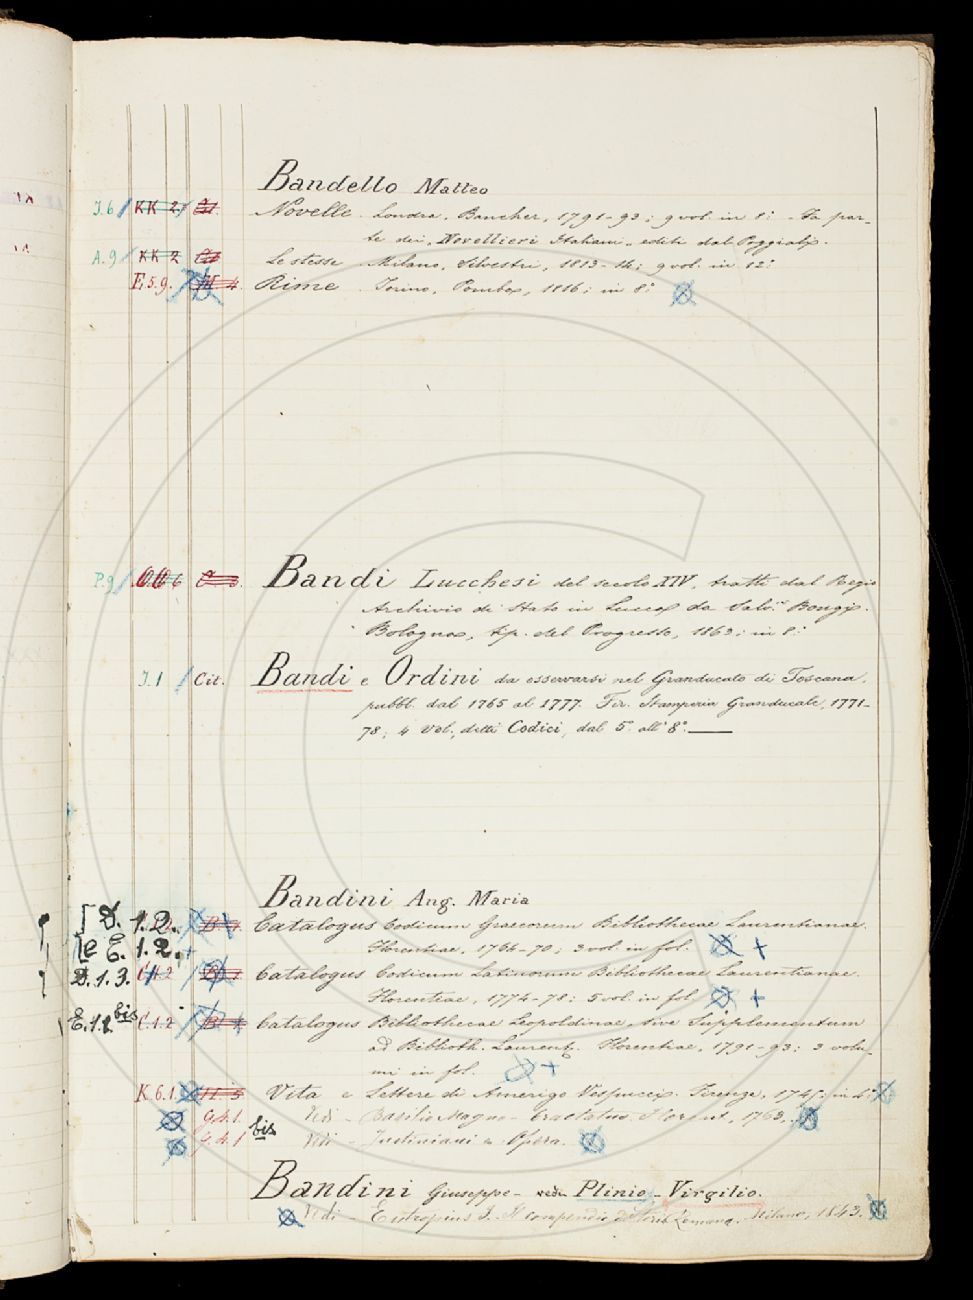 Bandello Matteo
J.6 KK 2 Novelle. Londra, Bancker, 1791-93; 9 vol. in 8.° - Fa par-
te dei "Novellieri Italiani" editi dal Poggiali.
A.9 KK 2 Le stesse Milano, Silvestri, 1813-14; 9 vol. in 12.°
E, 5.9. Rime. Torino, Pomba, 1816; in 8.°
P.9 OO 6 Bandi Lucchesi del secolo XIV, tratti dal Regio
Archivio di Stato in Lucca da Salv. Bongi.
Bologna, tip. del Progresso, 1863; in 8.°
J.1 Cit. Bandi e Ordini da osservarsi nel Granducato di Toscana.
pubbl. dal 1765 al 1777. Fir. Stamperia Granducale, 1771-
78; 4 vol., detti Codici, dal 5.° all' 8.°
Bandini Ang. Maria
[D. 1.2. Catalogus Codicum Graecorum Bibliothecae Laurentianae.
[e E. 1.2. Florentiae, 1764-70; 3 vol. in fol. +
D.1.3. Catalogus Codicum Latinorum Bibliothecae Laurentianae.
Florentiae, 1774-78; 5 vol. in fol +
E.1.2 bis C.1.2 Catalogus Bibliothecae Leopoldinae, sive Supplementum
ad Biblioth. Laurent. Florentiae, 1791-93; 3 volu-
mi in fol. +
K.6.1. Vita e Lettere di Amerigo Vespucci. Firenze, 1745. in 4.°
G.4.1. Vedi - Basilio Magno - Tractatus. Florent, 1763,
G.4.1 bis Vedi - Justiniani - Opera.
Bandini Giuseppe - vedi Plinio - Virgilio.
Vedi - Eutropius F. Il compendio Storia Romana. Milano, 1843.